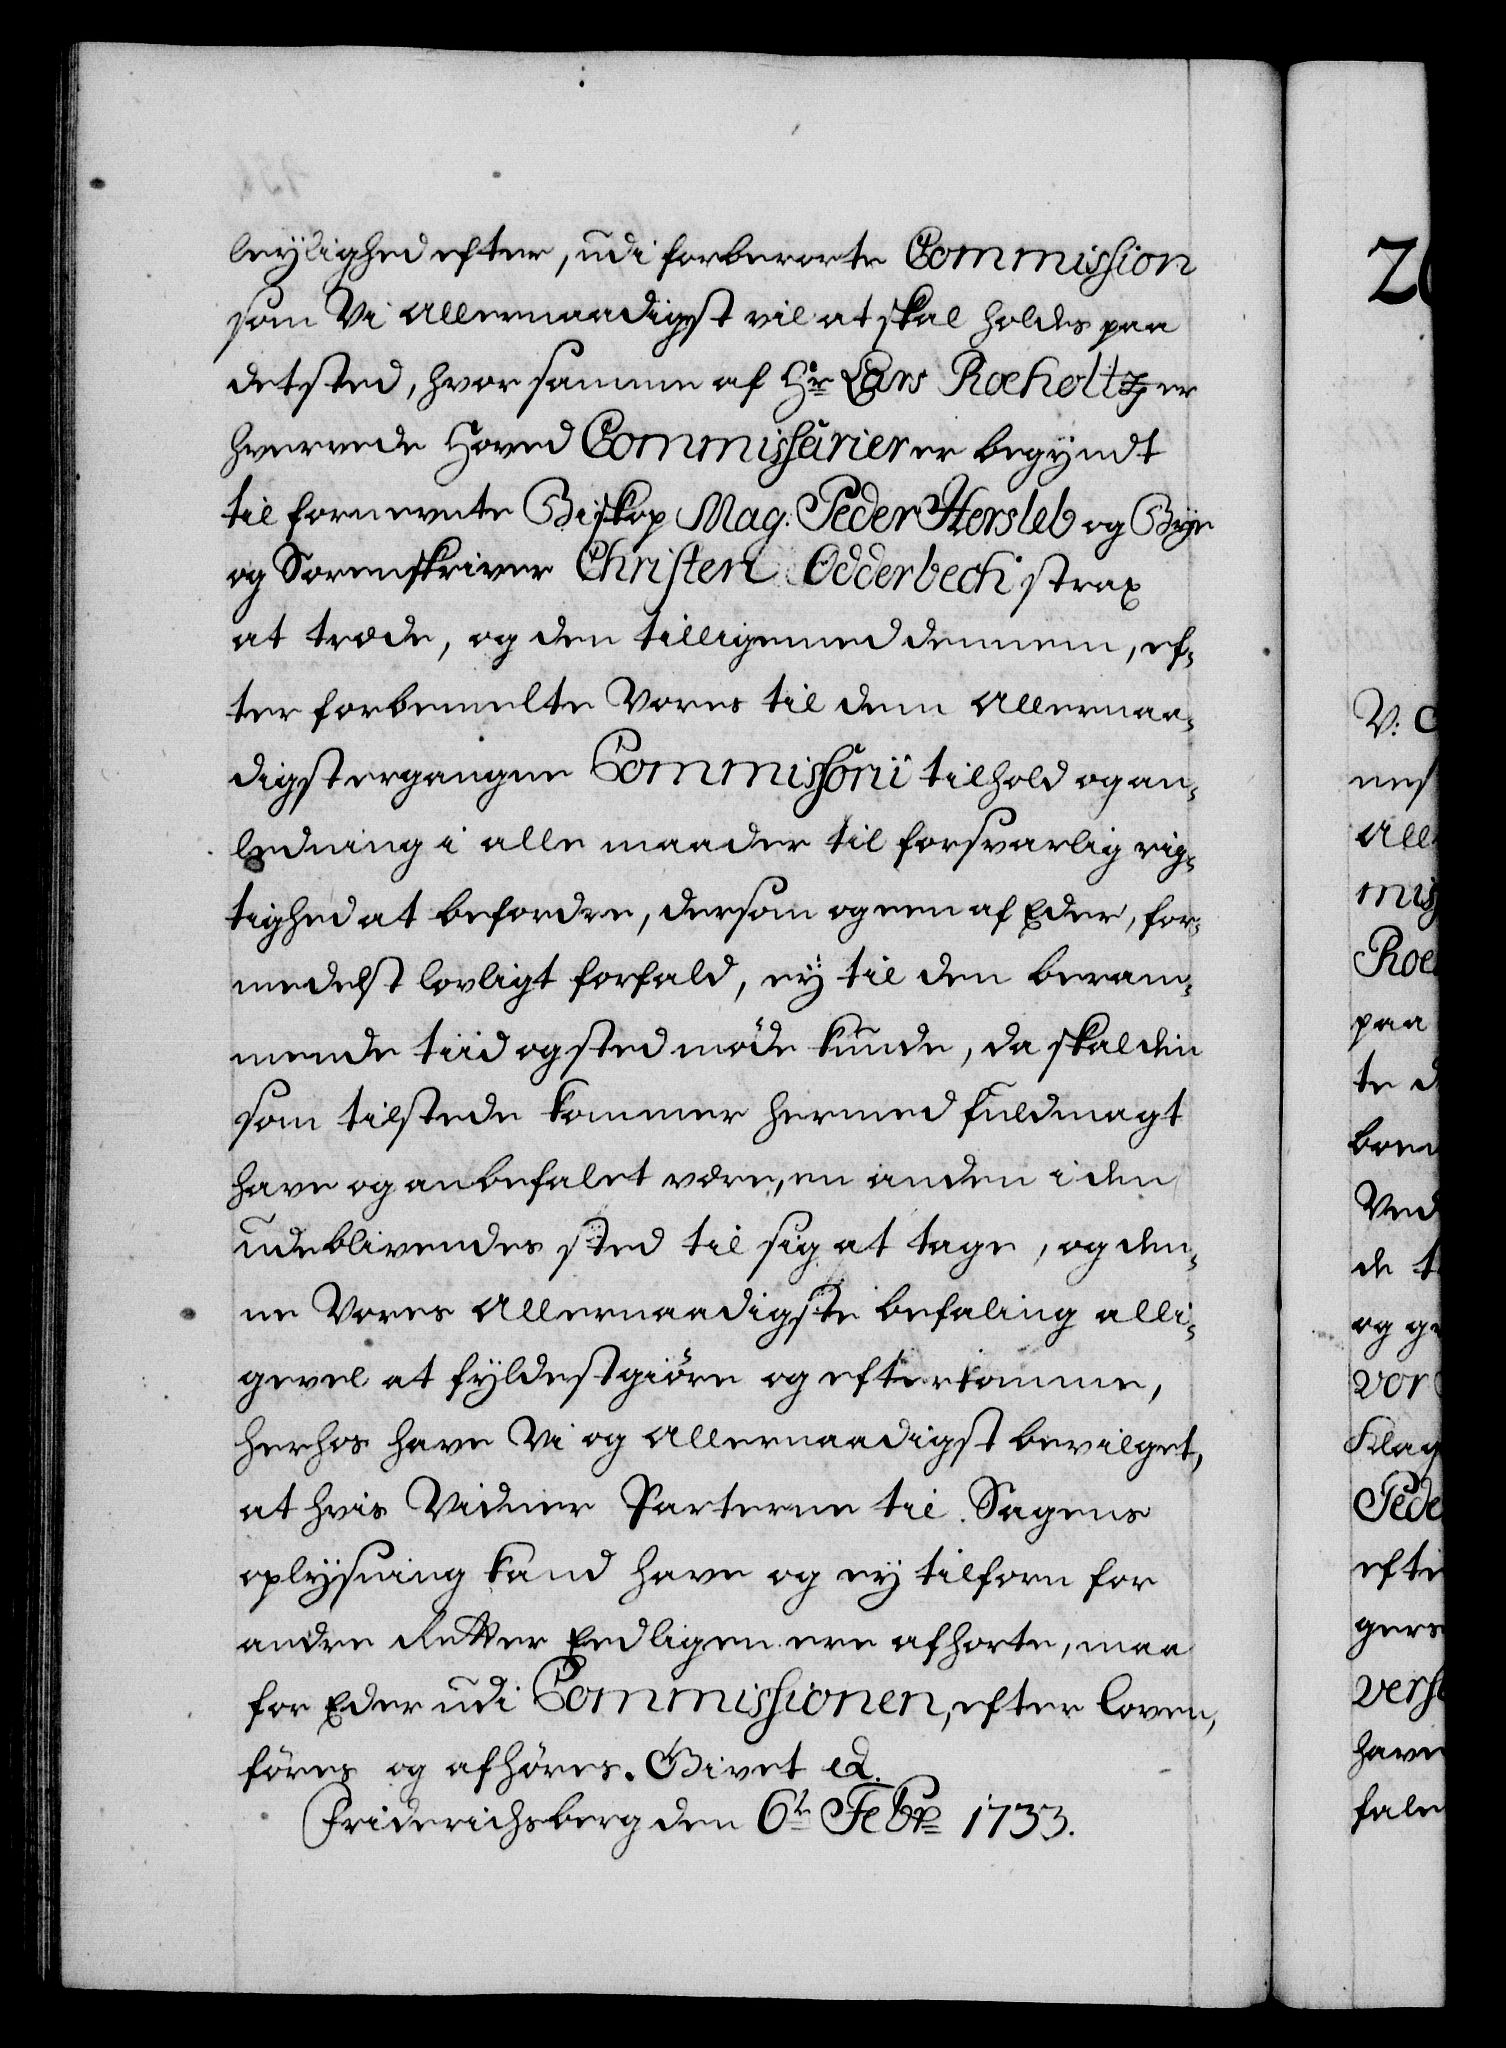 leylighed efter, udi forberørte Commission
som Vi allernaadigst vil at skal holdes paa
det sted, hvor samme af Hr Lars Roeholtz er
hvervede Hoved Commissarier er begyndt
til fornevnte Biskop Mag. Peder Hersleb og Bye
og Sorenskriver Christen Odderbech strax
at træde, og den tilligemed dennem, ef-
ter forbemelte Vores til dem allernaa-
digst ergangne Commissorii tilhold og an-
ledning i alle maader til forsvarlig rig-
tighed at befordre, dersom og een af Eder, for-
medelst lovligt forfald, ey til den beram-
mende tiid og sted møde kunde, da skal den
som tilstede kommer hermed fuldmagt
have og anbefalet være, en anden i den
udeblivendes sted til sig at tage, og den-
ne Vores allernaadigste befaling alli-
gevel at fyldestgiøre og efterkomme,
herhos have Vi og allernaadigst bevilget,
at hvis Vidner Parterne til Sagens
oplysning kand have og ey tilforn for
andre Retter Eedligen ere afhørte, maa
for Eder udi Commissionen, efter Loven,
føres og afhøres. Givet etc.
Friderichsberg den 6te Febr 1733.
V:
nes
All
mis
Roe
paa
te d
boen
Ved
de t
og ge
vor
Klag
Pede
efte
gers
vers
have
fale